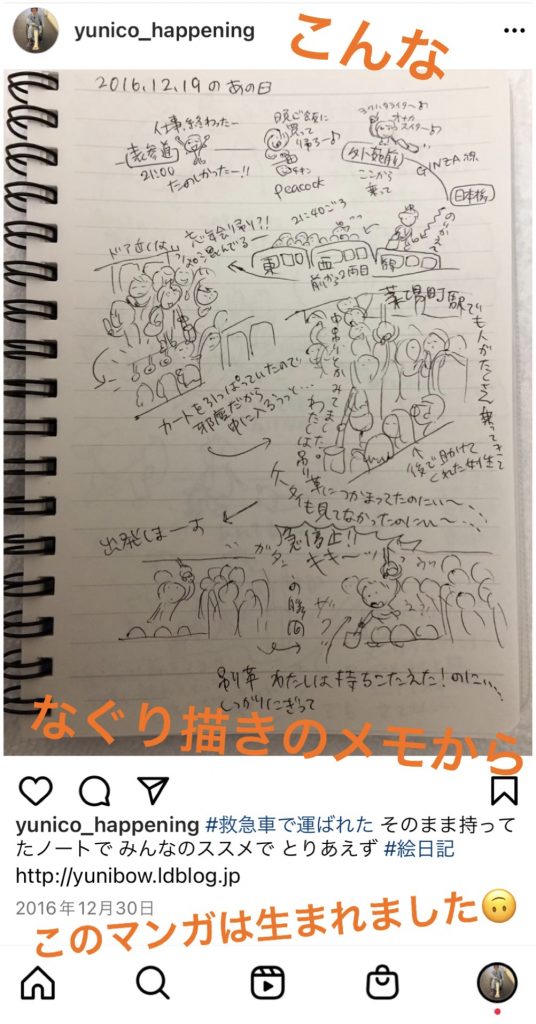 yunico_happening
こんな
2016.12.19のあの日
仕事、終わったー
表参道
21:00
たのしかったー!!
晩ご飯に
買って
帰ろー♪
チキン
peacock
外苑前
ここから
乗って
GINZA線
日本橋
のりかえて
21:40ごろ
忘年会帰り?!
東西線
前から2両目
カートを引っぱっていたので
邪魔だから
中に入ろうっと…
茅場町駅で
も人がたくさん乗ってきて
中吊りとかみてました。
わたしは吊り革につかまってたのにぃ〜
も見てなかったのにぃ〜…
後で助けて
くれた女性
出発しまーす
急停止!!
ガタン
キキーッ!
吊革 わたしは持ちこたえた!のにぃ…
しっかりにぎって
なぐり描きのメモから
yunico_happening #救急車で運ばれた そのまま持って
たノートで みんなのススメで とりあえず #絵日記
http://yunibow.ldblog.jp
2016年12月30日
このマンガは生まれました🙃